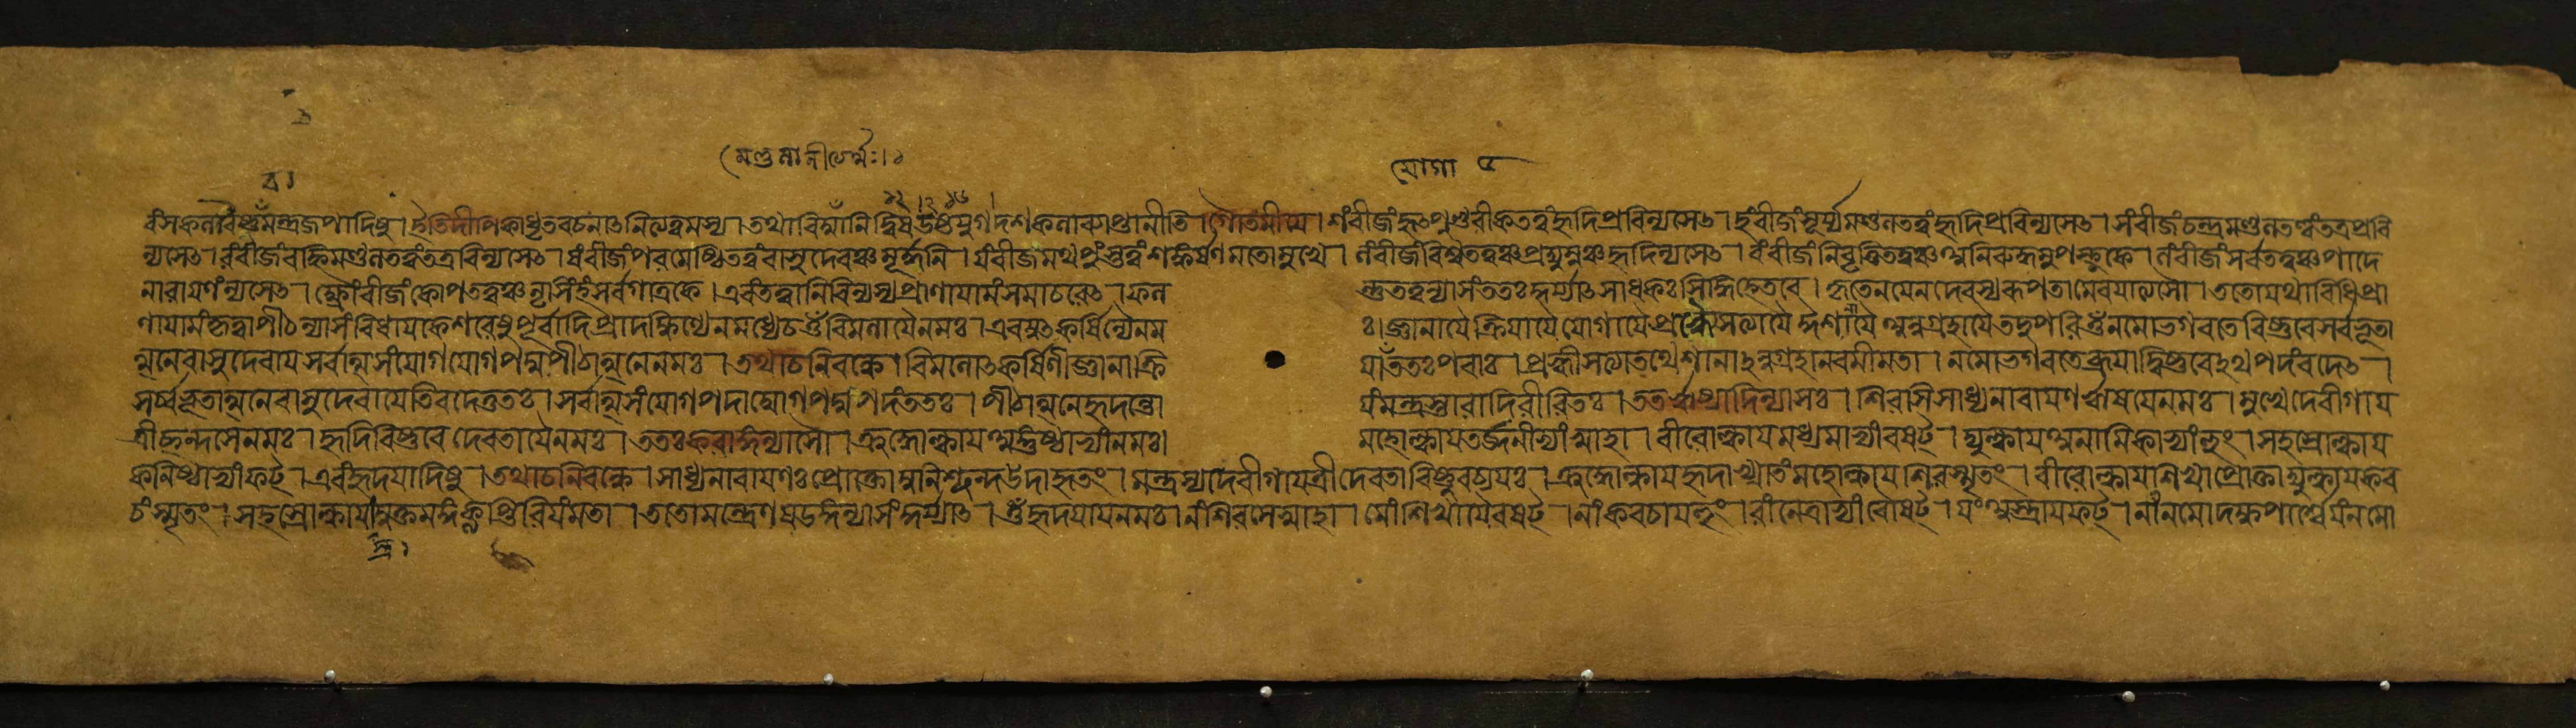 মণ্ডলানীত্যর্থঃ।১
যোগা ৫
১২।২ ১৬।
বংসকলাবৈষ্ণুমন্ত্রজপাদিষু । ইতিদীপিকাধৃতবচনাৎনিত্যত্বমস্য । তথাবিম্বানিদ্বিষড়ষ্টযুগদশকলাব্যাপ্তানীতি । গৌতমীয়ে । শংবীজংহৃৎপুণ্ডরীকতত্বংহৃদিপ্রবিন্যসেৎ । হংবীজংসূর্য্যমণ্ডলতত্বংহৃদিপ্রবিন্যসেৎ । সংবীজংচন্দ্রমণ্ডলতত্বংতত্রপ্রবি
ন্যসেৎ । রংবীজংবহ্নিমণ্ডলতত্বংতত্রবিন্যসেৎ । ষংবীজংপরমেষ্ঠিতত্বংবাসুদেবঞ্চমূর্দ্ধনি । যংবীজমথপুংস্তত্বংশঙ্কর্ষণমতোমুখে । লংবীজংবিশ্বতত্বঞ্চপ্রদ্যুম্নঞ্চহৃদিন্যসেৎ । বংবীজংনিবৃত্তিতত্বঞ্চঅনিরুদ্ধমুপস্থকে । লংবীজংসর্বতত্বঞ্চপাদে
নারায়ণংন্যসেৎ । ক্ষ্রৌংবীজংকোপতত্বঞ্চনৃসিংহংসর্বগাত্রকে । এবংতত্বানিবিন্যস্যপ্রাণায়ামংসমাচরেৎ । ফল ন্তুতত্বন্যাসংততঃকুর্য্যাৎসাধকঃসিদ্ধিহেতবে । কৃতেনযেনদেবস্যরূপতামেবযাত্যসৌ । ততোযথাবিধিপ্রা
ণায়ামংকৃত্বাপীঠন্যাসংবিধায়কেশরেষুপূর্বাদিপ্রাদক্ষিণ্যেনমধ্যেচওঁবিমলায়ৈনমঃ । এবমুৎকর্ষিণ্যৈনম ঃ।জ্ঞানায়ৈক্রিয়ায়ৈযোগায়ৈপ্রহ্ব্যৈসত্যায়ৈঈশানায়ৈঅনুগ্রহায়ৈতদুপরিওঁনমোভগবতেবিষ্ণবেসর্বভূতা
ত্মনেবাসুদেবায়সর্বাত্মসংযোগযোগপদ্মপীঠাত্মনেনমঃ । তথাচনিবন্ধে । বিমলোৎকর্ষিণীজ্ঞানাক্রি যাততঃপরাঃ । প্রহ্বীসত্যাতথেশানাঽনুগ্রহানবমীমতা । নমোভগবতেব্রূয়াদ্বিষ্ণবেঽথপদংবদেৎ ।
সর্ব্বভূতাত্মনেবাসুদেবায়েতিবদেত্ততঃ । সর্বাত্মসংযোগপদাদ্যোগপদ্মপদংততঃ । পীঠাত্মনেহৃদন্তো যংমন্ত্রস্তারাদিরীরিতঃ । ততঋষ্যাদিন্যাসঃ । শিরসিসাধ্যনারায়ণঋষয়েনমঃ । মুখেদেবীগায়
ত্রীছন্দসেনমঃ । হৃদিবিষ্ণবেদেবতায়ৈনমঃ । ততঃকরাঙ্গন্যাসৌ । ক্রুদ্ধোল্কায়অঙ্গুষ্ঠাভ্যাংনমঃ। মহোল্কায়তর্জ্জনীভ্যাংস্বাহা । বীরোল্কায়মধ্যমাভ্যাংবষট্ । দ্যুল্কায়অনামিকাভ্যাংহুং । সহস্রোল্কায়
কনিষ্ঠাভ্যাংফট্ । এবংহৃদয়াদিষু । তথাচনিবন্ধে । সাধ্যনারায়ণঃপ্রোক্তোমুনিশ্ছন্দউদাহৃতং । মন্ত্রস্যদেবীগায়ত্রীদেবতাবিষ্ণুরব্যয়ঃ । ক্রুদ্ধোল্কায়হৃদাখ্যাতংমহোল্কায়শিরস্মৃতং । বীরোল্কায়শিখাপ্রোক্তাদ্যুল্কায়কব
চংস্মৃতং । সহস্রোল্কায়ামুক্তমঙ্গিক্লৃপ্তিরিয়ংমতা । ততোমন্ত্রেণষড়ঙ্গন্যাসংকুর্য্যাৎ । ওঁহৃদয়ায়নমঃ । নংশিরসেস্বাহা । মোংশিখায়ৈবষট্ । নাংকবচায়হুং । রাংনেত্রাভ্যাংবৌষট্ । যংঅস্ত্রায়ফট্ । ণাংনমোদক্ষপার্শ্বেযংনমো
স্ত্র১